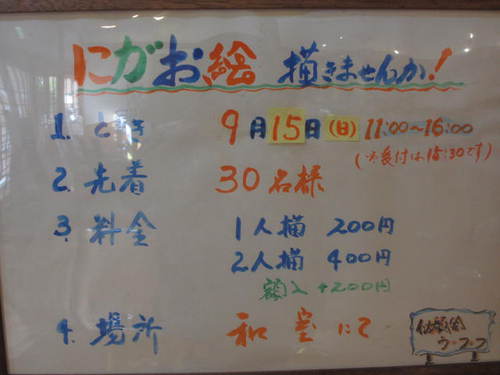 にがお絵 描きませんか!
1. とき 9月15日(日) 11:00~16:00
(※受付は15:30です)
2. 先着 30名様
3. 料金 1人描 200円
2人描 400円
額入 +200円
4. 場所 和室にて
似顔絵
ラ・フ・フ